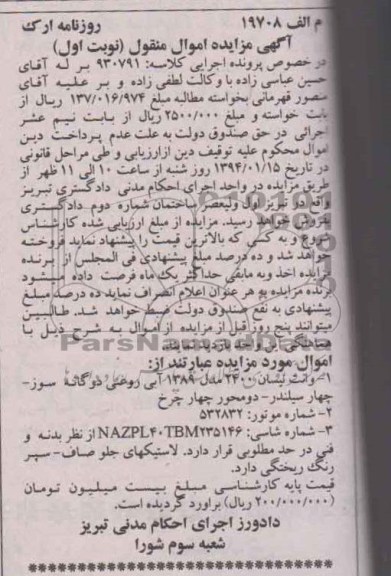 م الف ۱۹۷۰۸ روزنامه ارک
آگهی مزایده اموال منقول (نوبت اول)
در خصوص پرونده اجرایی کلاسه: ۹۳۰۷۹۱ بر له آقای
حسین عباسی زاده با وکالت لطفی زاده و بر علیه آقای
منصور قهرمانی بخواسته مطالبه مبلغ ۱۳۷/۰۱۶/۹۷۴ ریال از
بابت خواسته و مبلغ ۲۵۰۰/۰۰۰ ریال از بابت نیم عشر
اجرائی در حق صندوق دولت به علت عدم پرداخت دین
اموال محکوم علیه توقیف دین ازارزیابی و طی مراحل قانونی
در تاریخ ۱۳۹۴/۰۱/۱۵ روز شنبه از ساعت ۱۰ الی ۱۱ ظهر از
طریق مزایده در واحد اجرای احکام مدنی دادگستری تبریز
واقع در تبریز اول ولیعصر ساختمان شماره دوم دادگستری
بفروش خواهد رسید. مزایده از مبلغ ارزیابی شده کارشناس
شروع و به کسی که بالاترین قیمت را پیشنهاد نماید فروخته
خواهد شد و ده درصد مبلغ پیشنهادی فی المجلس از برنده
مزایده اخذ وبه مابقی حداکثر یک ماه فرصت داده میشود
برنده مزایده به هر عنوان اعلام انصراف نماید ده درصد مبلغ
پیشنهادی به نفع صندوق دولت ضبط خواهد شد. طالبین
میتوانند پنج روز قبل از مزایده از اموال به شرح ذیل با
هماهنگی این واحد بازدید نمایند.
اموال مورد مزایده عبارتند از:
۱- وانت نیسان ۲۴۰۰ مدل ۱۳۸۹-آبی روغنی دوگانه سوز-
چهار سیلندر- دومحور چهار چرخ
۲- شماره موتور: ۵۳۲۸۳۲
۳- شماره شاسی: NAZPL۴۰TBM۲۳۵۱۴۶ از نظر بدنه و
فنی در حد مطلوبی قرار دارد. لاستیکهای جلو صاف- سپر
رنگ ریختگی دارد.
قیمت پایه کارشناسی مبلغ بیست میلیون تومان
(۲۰۰/۰۰۰/۰۰۰ ریال) براورد گردیده است.
دادورز اجرای احکام مدنی تبریز
شعبه سوم شورا